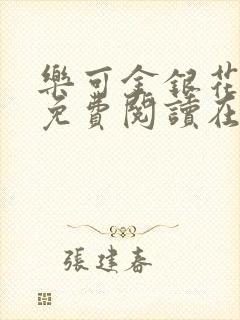 樂可金銀花
免費閱讀在
張建春